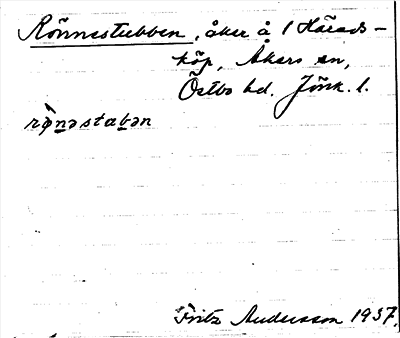 Rönnestubben, åker å 1 Härads-
köp, Åkers sn,
Östbo hd. Jönk. l.
rònəstabən
Fritz Andersson 1937.